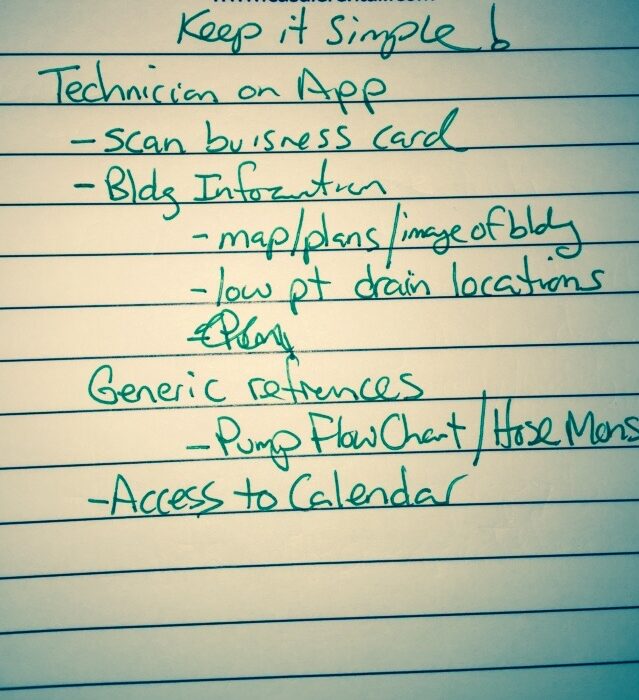 Keep it Simple!
Technician on App
- Scan buisness card
- Bldg Information
- map/plans/image of bldg
- low pt drain locations
Generic refrences
- Pump Flow Chart / Hose Mons
- Access to Calendar